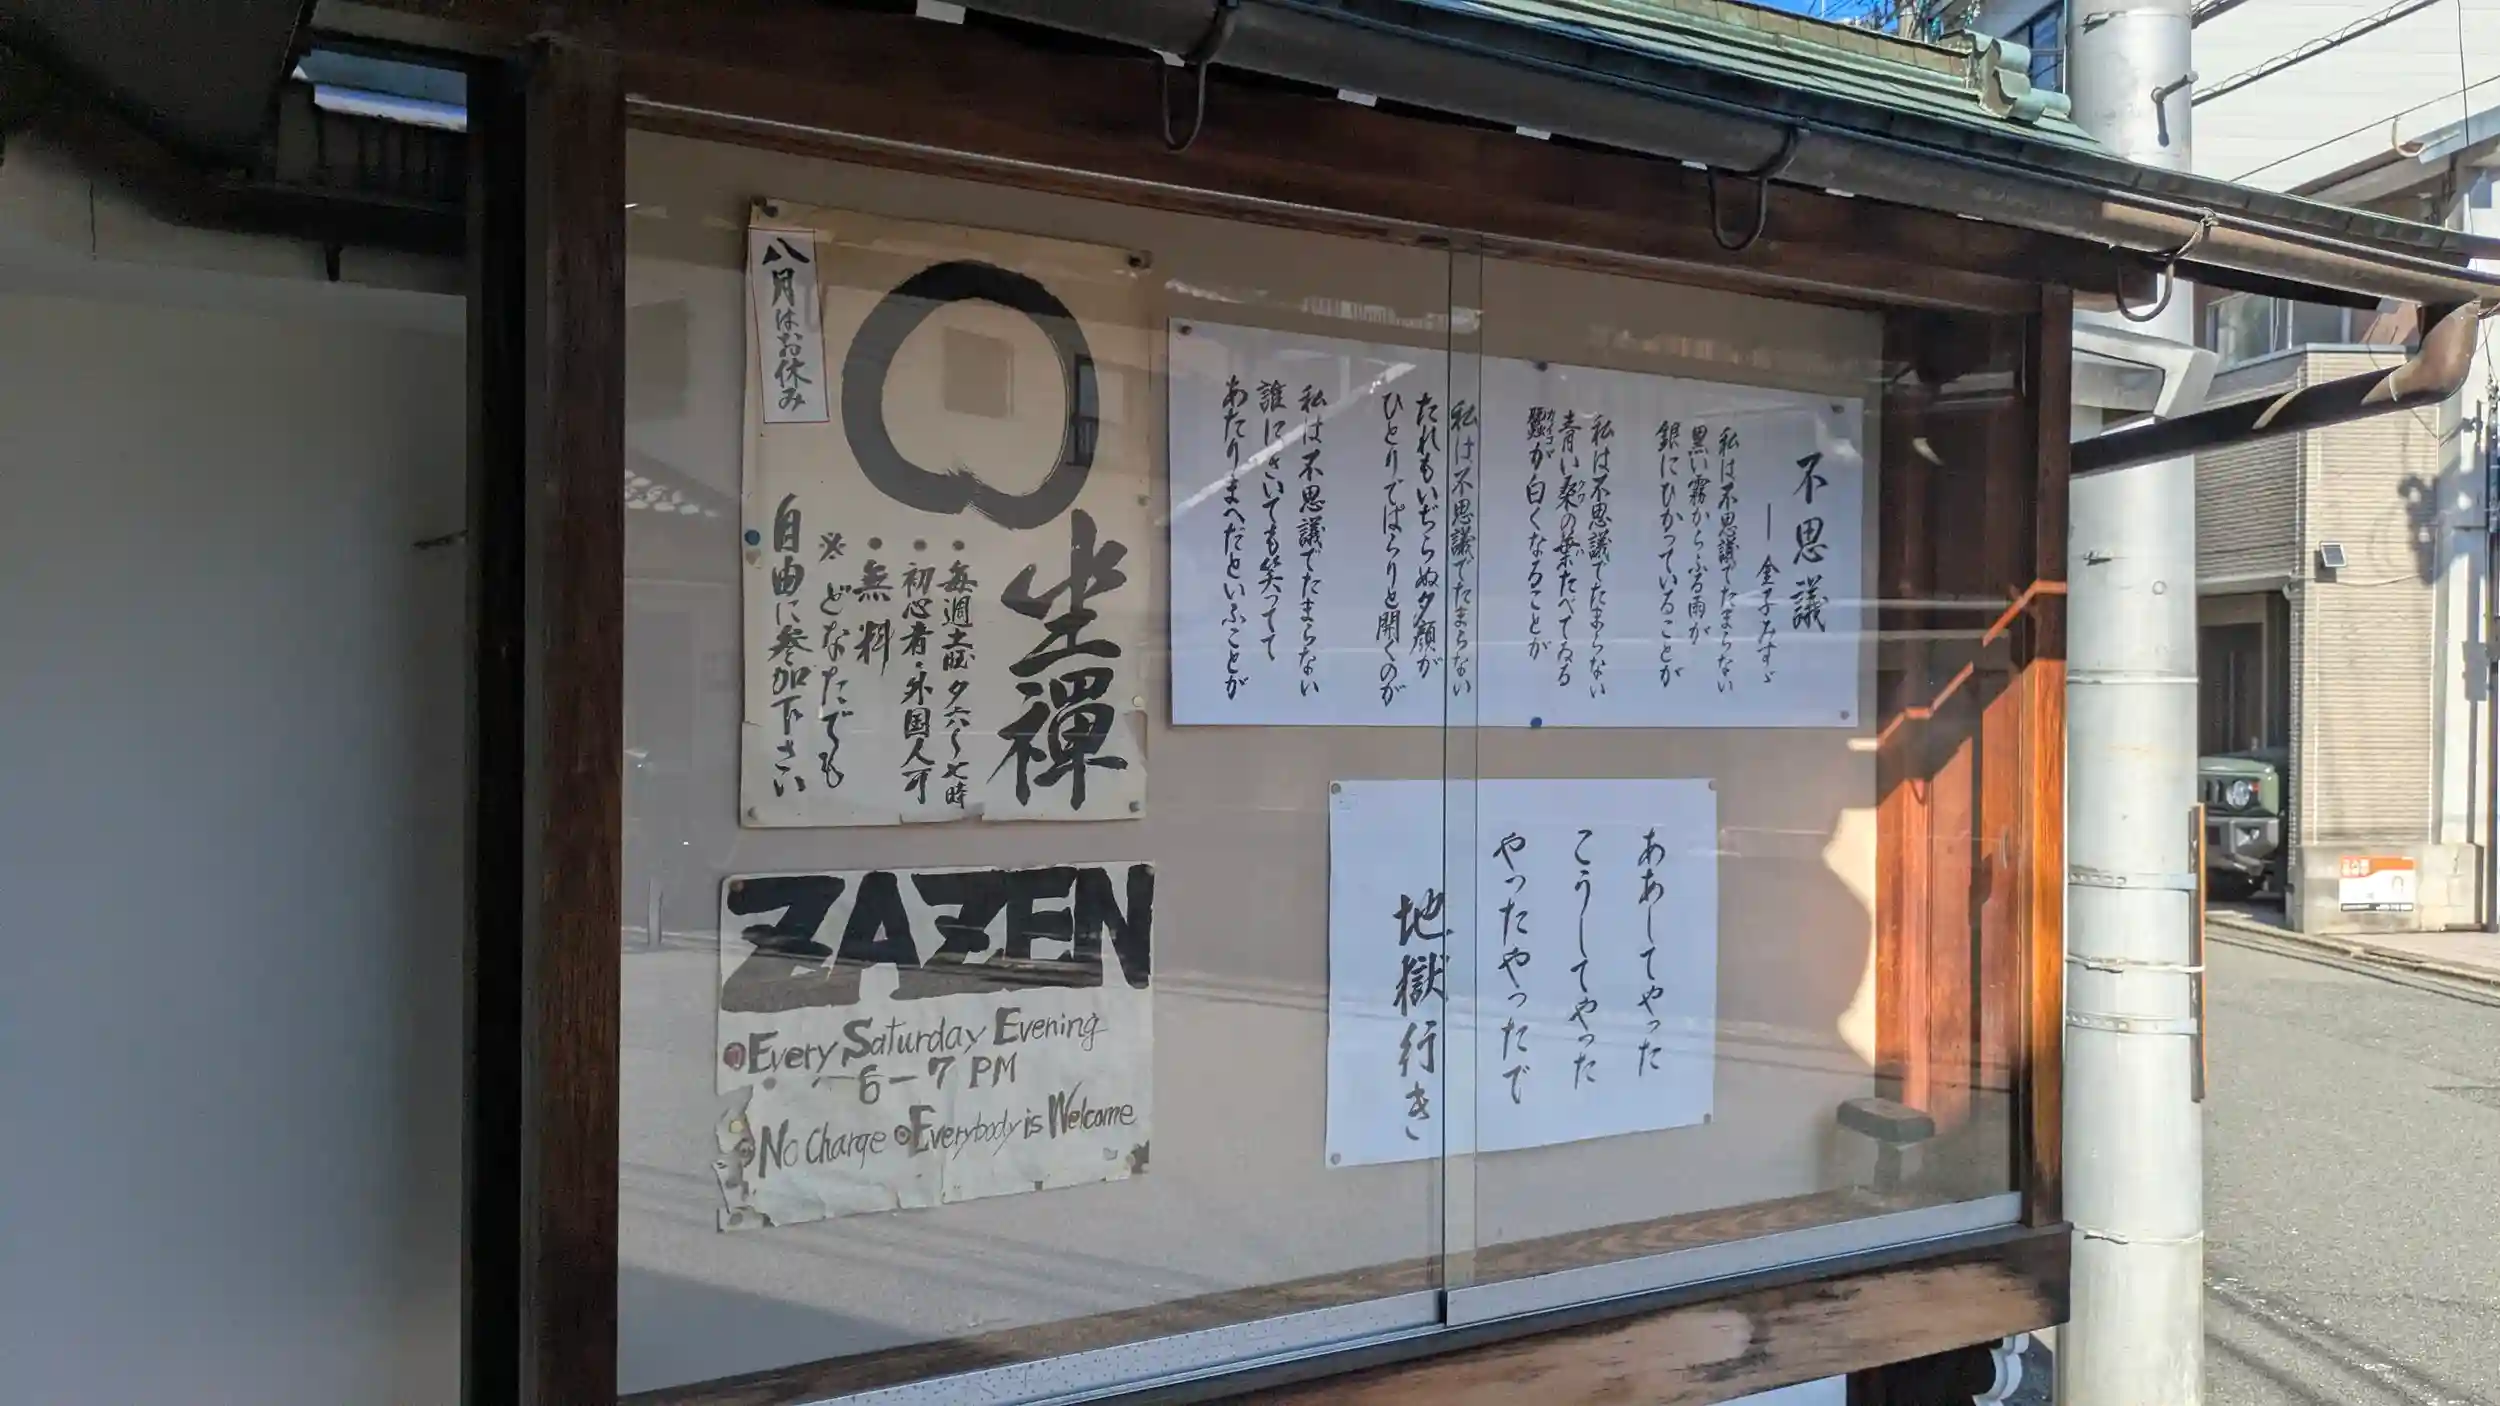 八月はお休み
坐禅
・毎週土曜夕六〜七時
・初心者・外国人可
・無料
※どなたでも
自由に参加下さい
ZAZEN
Every Saturday Evening
6-7 PM
No Charge
Everybody is Welcome
不思議
― 金子みすゞ
私は不思議でたまらない
黒い雲からふる雨が
銀にひかっていることが
私は不思議でたまらない
青い桑の葉たべてゐる
クワ
蠶が白くなることが
カイコ
私は不思議でたまらない
たれもいぢらぬ夕顔が
ひとりでぱらりと開くのが
私は不思議でたまらない
誰にきいても笑ってて
あたりまへだといふことが
ああしてやった
こうしてやった
やったやったで
地獄行き